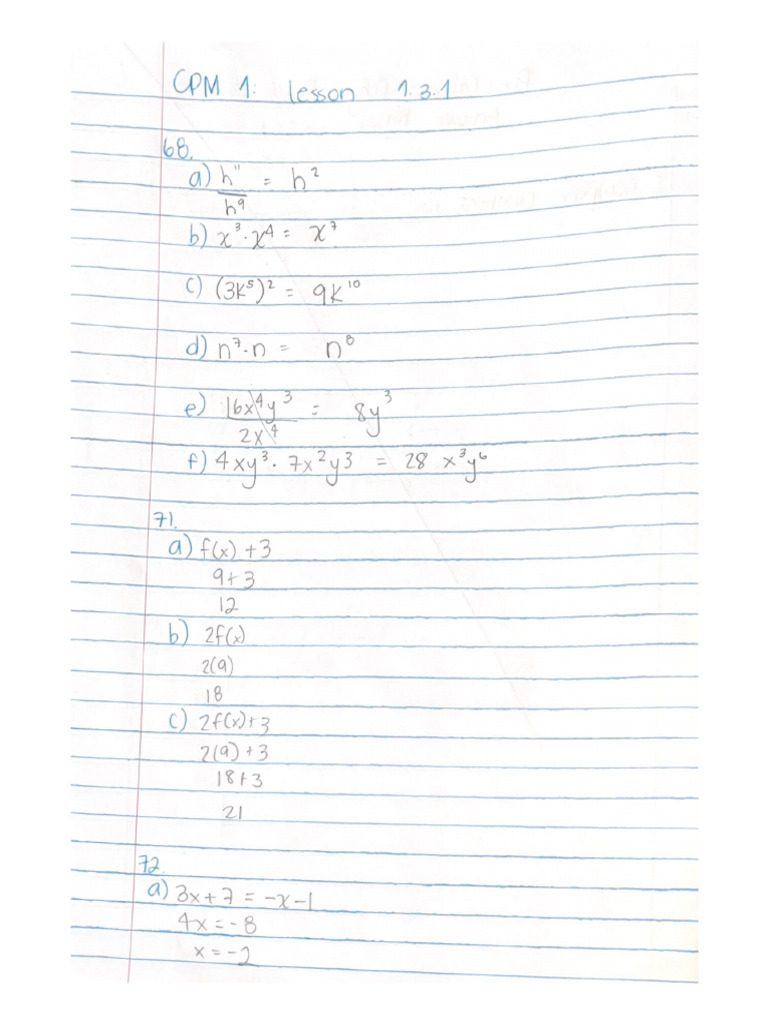 CPM 1: lesson 1.3.1
68.
a) h¹¹/h⁹ = h²
b) x³·x⁴ = x⁷
c) (3k⁵)² = 9k¹⁰
d) n⁷·n = n⁸
e) 16x⁴y³/2x⁴ = 8y³
f) 4xy³·7x²y3 = 28 x³y⁶
71.
a) f(x) +3
9+3
12
b) 2f(x)
2(9)
18
c) 2f(x)+3
2(9)+3
18+3
21
72.
a) 3x+7 = -x-1
4x = -8
x = -2